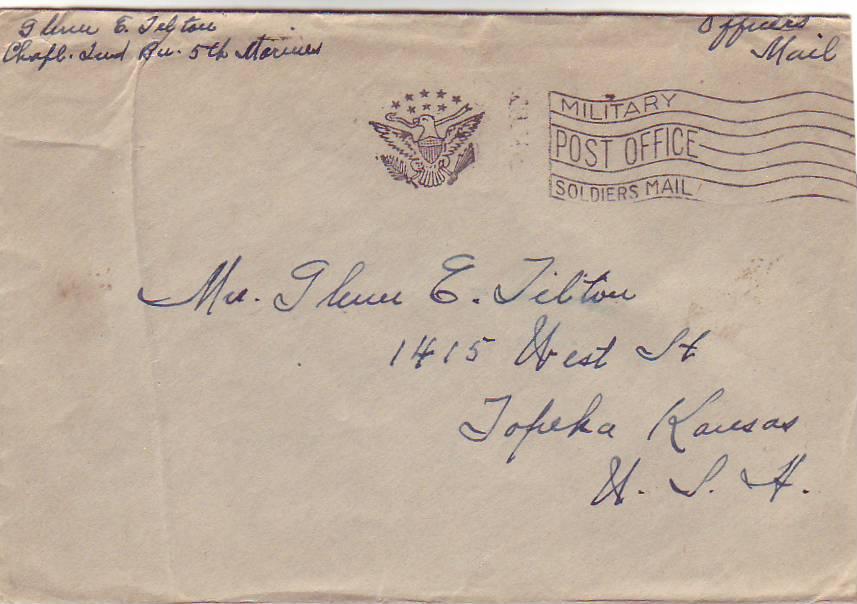 Glenn E. Tilton
Chapl. 2nd Bn. 5th Marines
Officers
Mail
MILITARY
POST OFFICE
SOLDIERS MAIL
Mr. Glenn E. Tilton
1415 West St
Topeka Kansas
U. S. A.